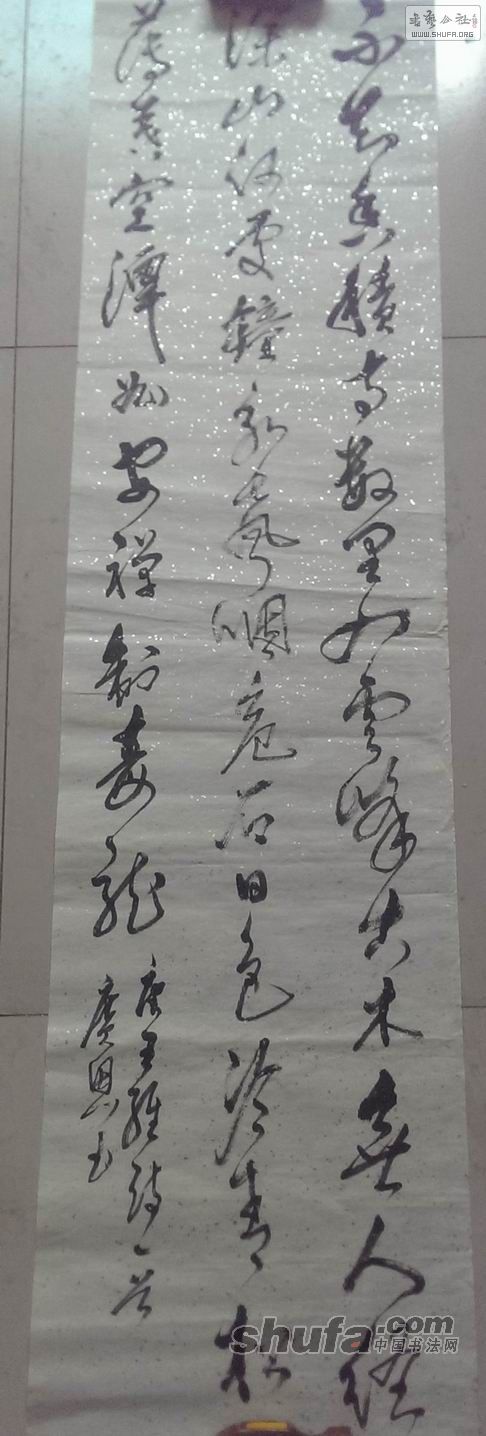 不知香積寺數里入雲峰古木無人徑
深山何處鐘泉聲咽危石日色冷青松
薄暮空潭曲安禪制毒龍
唐王維詩一首
廣恩書
书艺公社
WWW.SHUFA.ORG
shufa.com
中国书法网